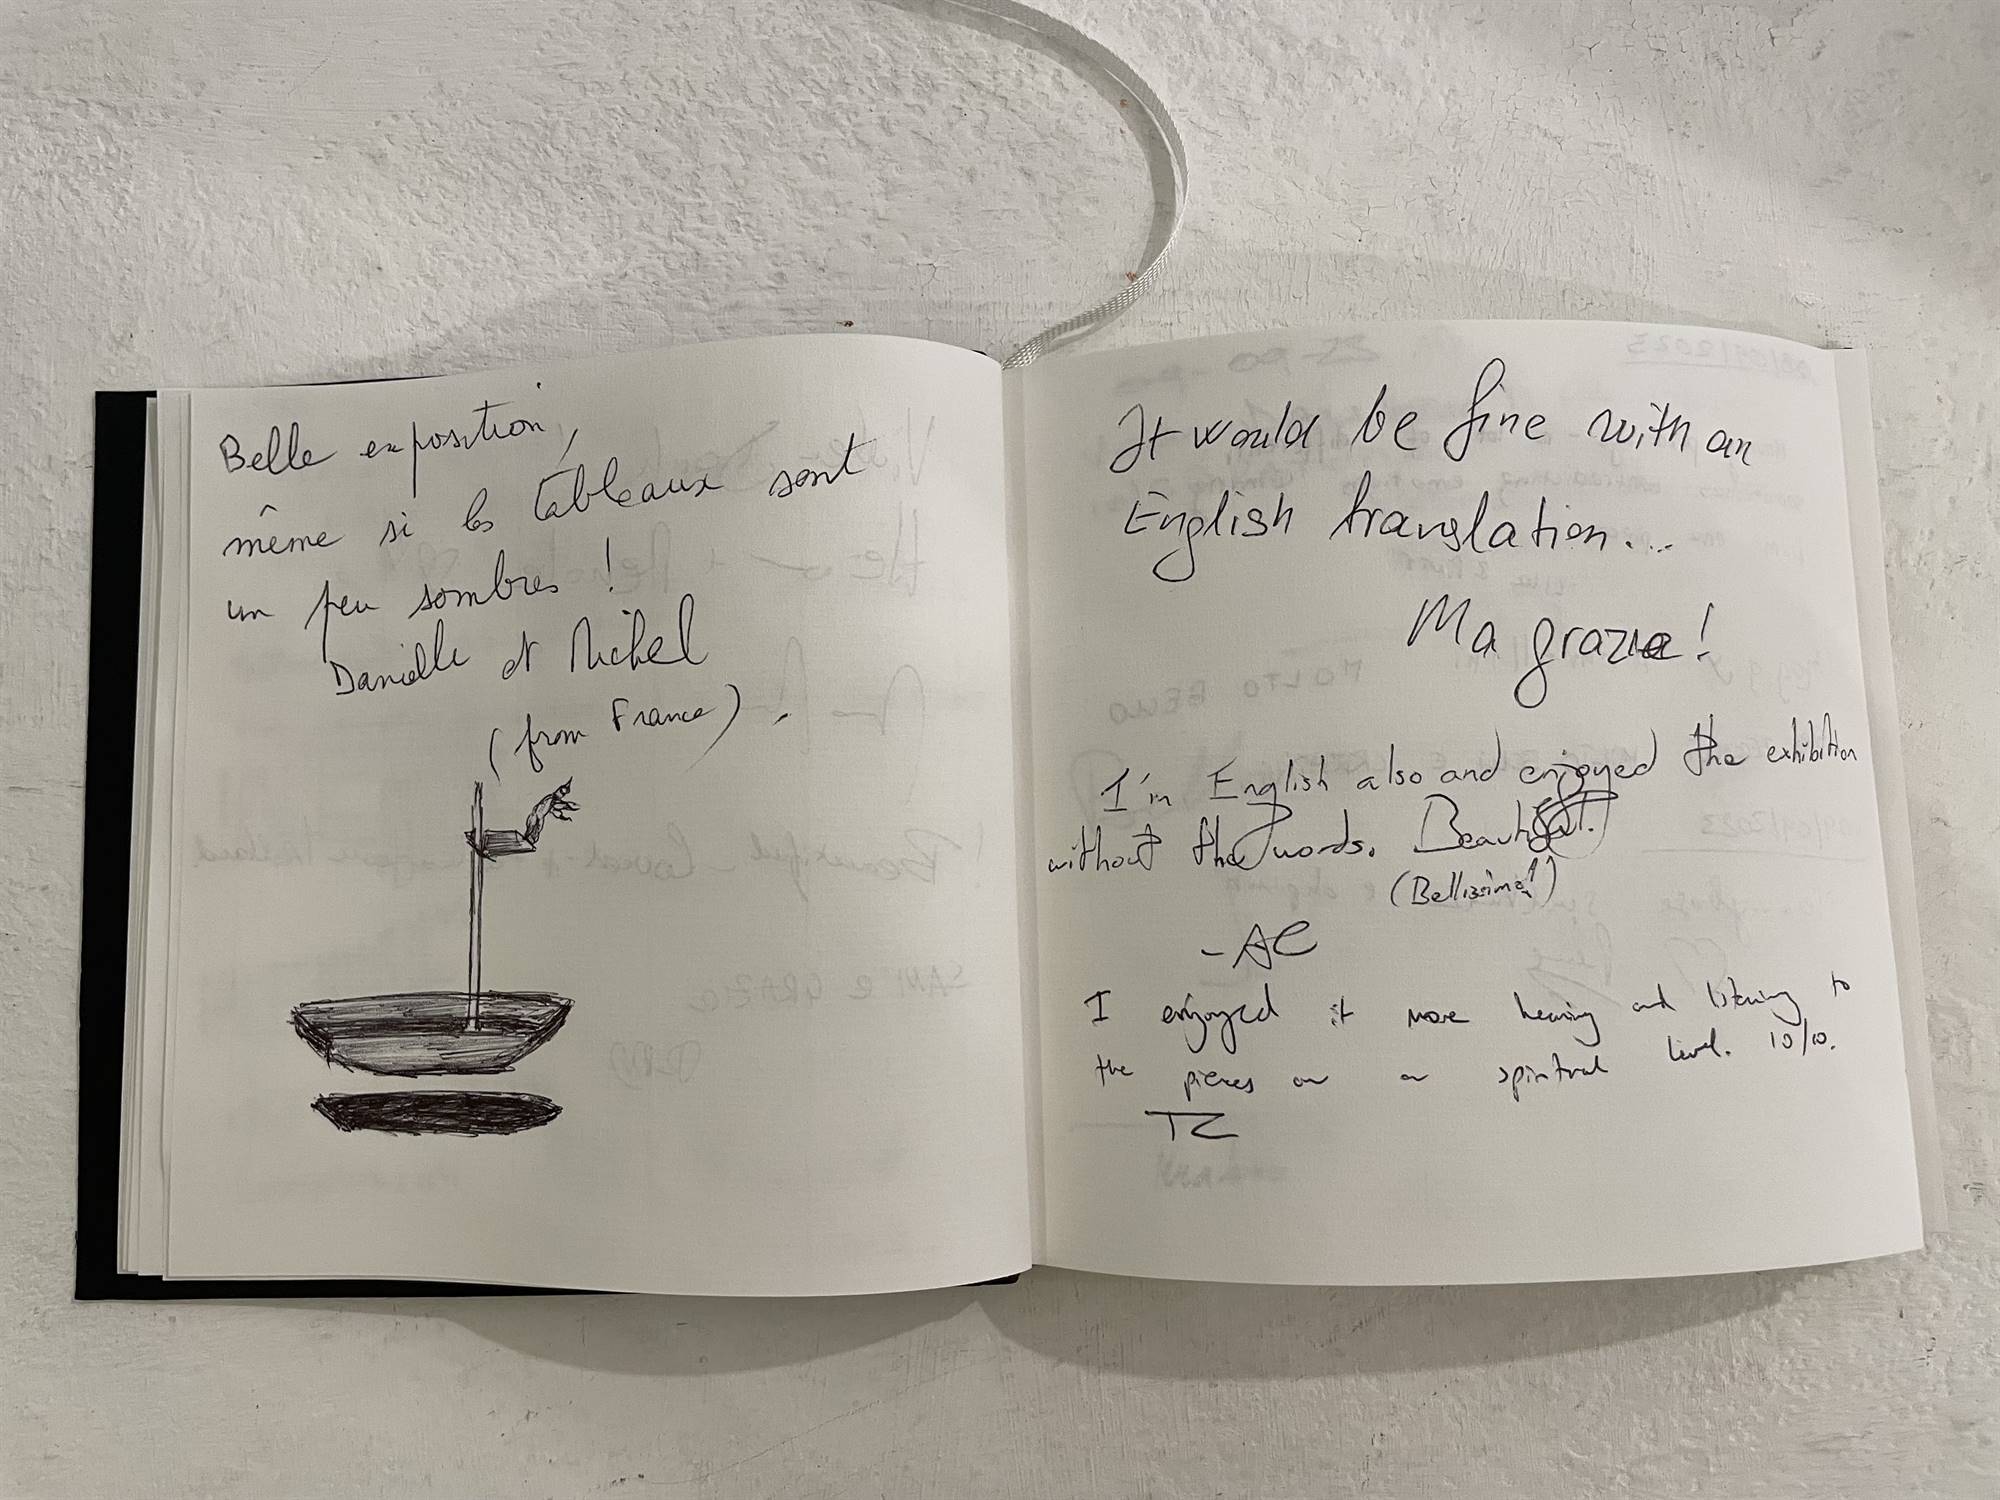 Belle exposition,
même si les tableaux sont
un peu sombres !
Danielle et Michel
(from France).
It would be fine with an
English translation...
Ma grazie!
I'm English also and enjoyed the exhibition
without the words. Beautiful.
(Bellissima!)
- AC
I enjoyed it more hearing and listening to
the pieces on a spiritual level. 10/10.
TZ